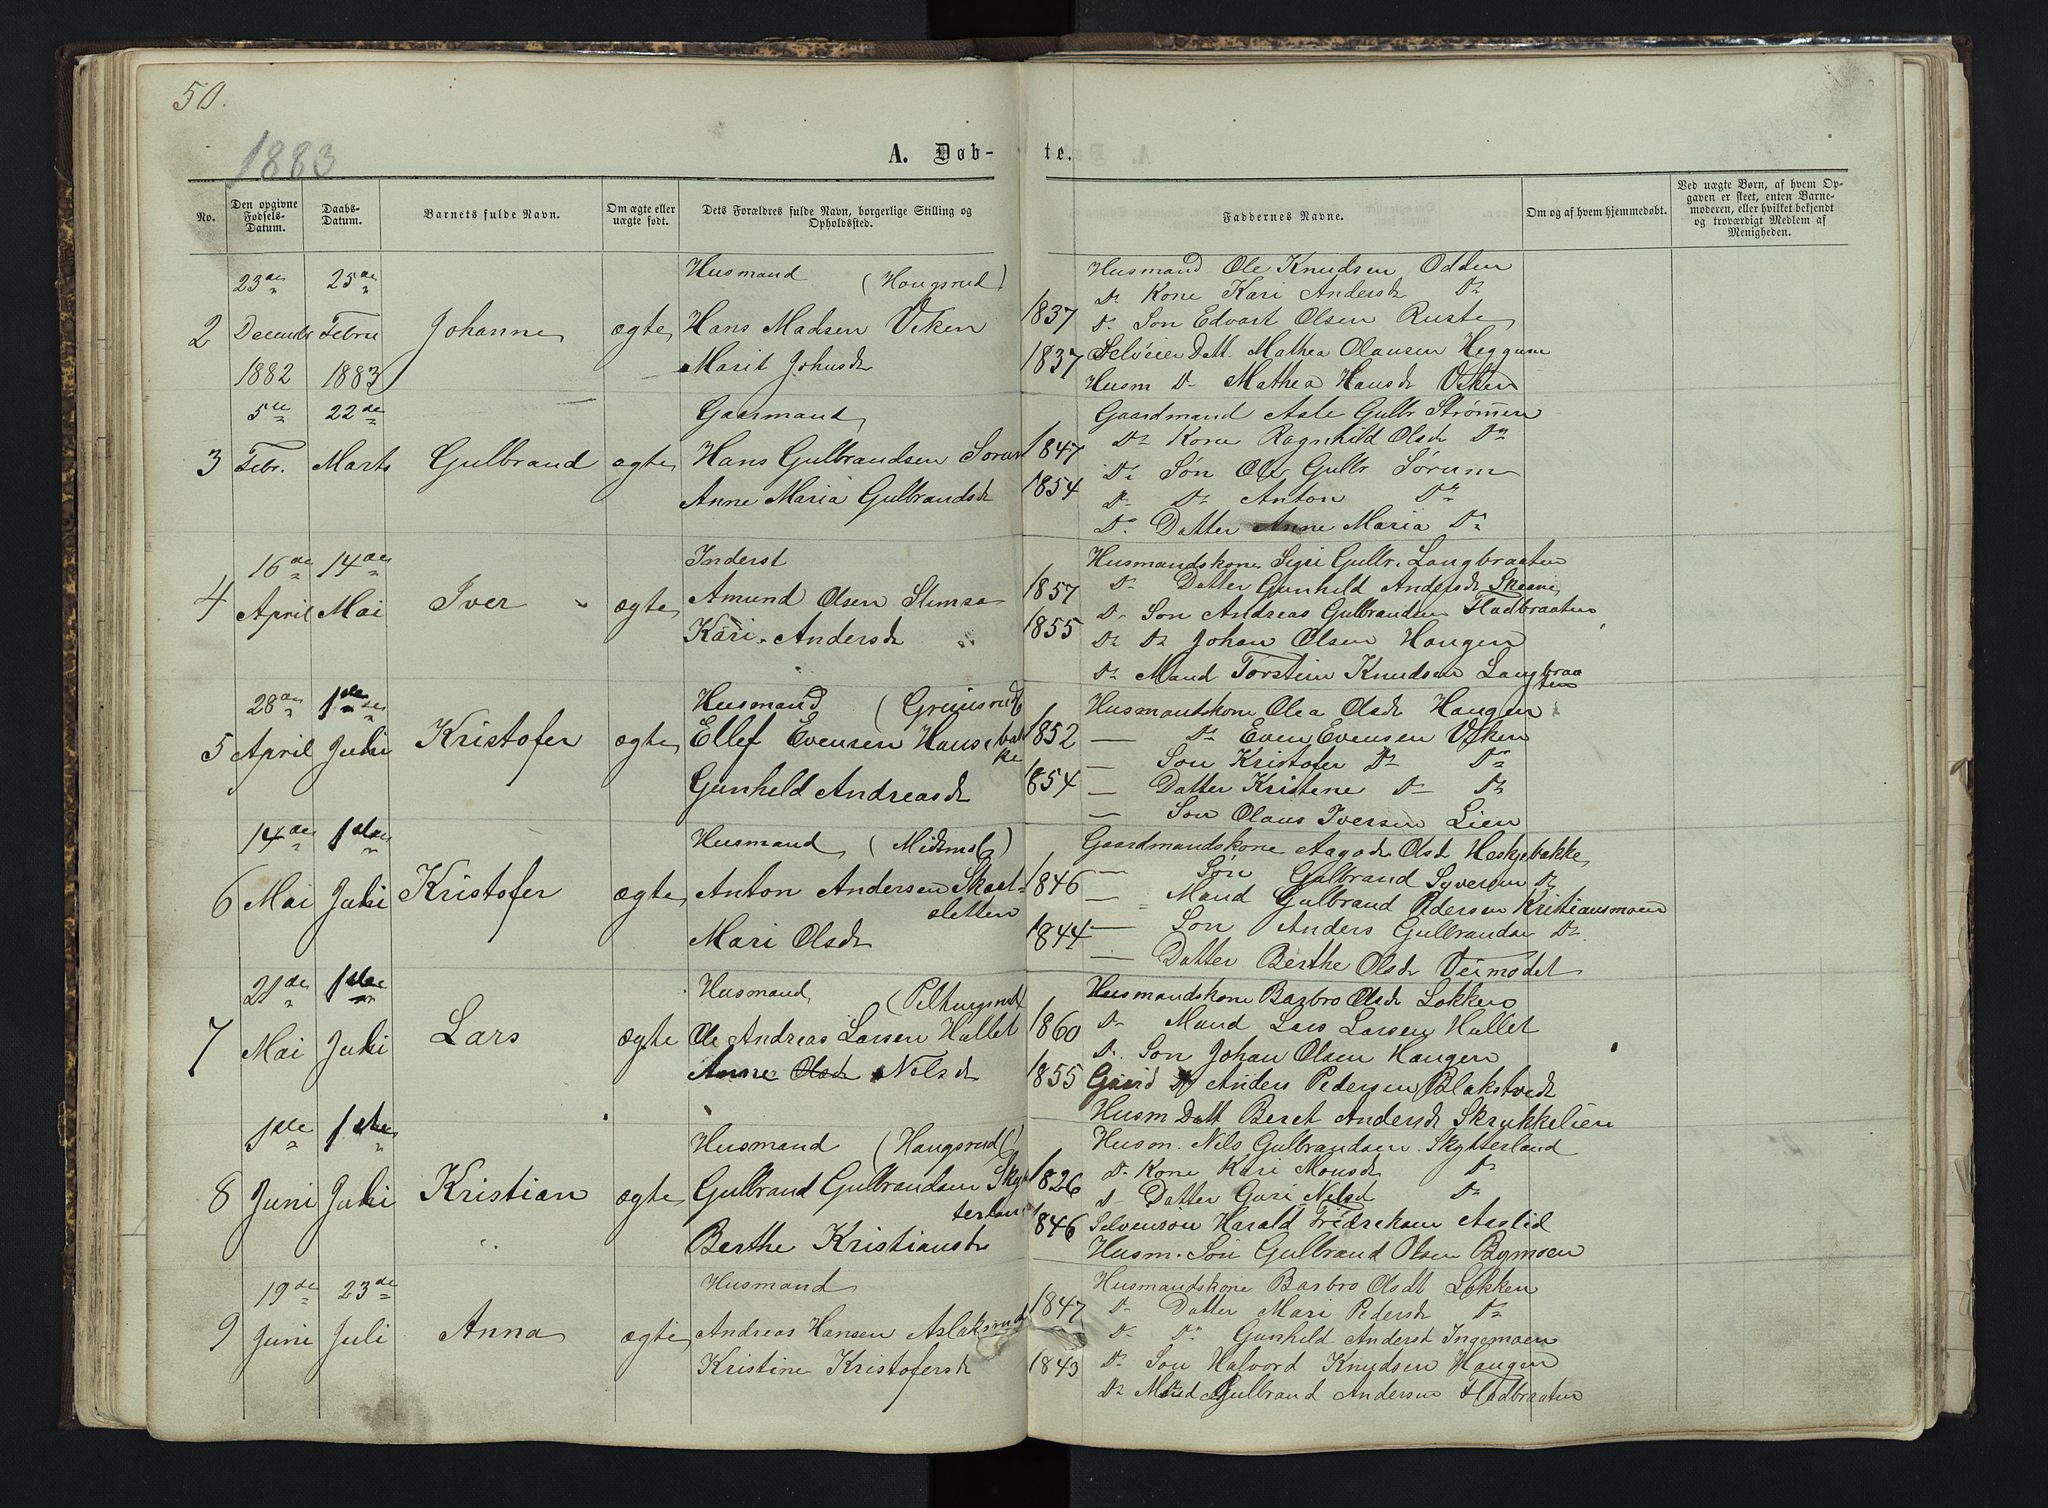 50.
1883
A. Døb-
te.
No.
Den opgivne Fødsels-Datum.
Daabs-Datum.
Barnets fulde Navn.
Om ægte eller uægte født.
Dets Forældres fulde Navn, borgerlige Stilling og Opholdssted.
Faddernes Navne.
Om og af hvem hjemmedøbt.
Ved uægte Børn, af hvem Opgaven er skeet, enten Barnemoderen, eller hvilket bekjendt og troværdigt Medlem af Menigheden.
2
23de
Decemb
1882
25de
Febru
1883
Johanne
ægte
Husmand (Hougsrud)
Hans Madsen Viken
Marit Johnsdr
1837
1837
Husmand Ole Knudsen Odden
Do Kone Kari Andersdr Do
Do Søn Edvart Olsen Ruste
Selveier Datt. Mathea Olausen Heggum
Husm Do Mathea Hansdr Viken
3
5te
Febr.
22de
Marts
Gulbrand
ægte
Gaarmand
Hans Gulbrandsen Sorum
Anne Maria Gulbrandsdr
1847
1854
Gaardmand Asle Gulbr Strømen
Do Kone Ragnhild Olsdr Do
Do Søn Ole Gulbr Sørum
Do Do Anton Do
Do Datter Anne Maria Do
4
16de
April
14de
Mai
Iver
ægte
Inderst
Amund Olsen Slimsa
Kari Andersdr
1857
1855
Husmandskone Sigri Gulbr. Langbraaten
Do Datter Gunhild Andersdr
Do Søn Andreas Gulbrandsen Fladbraaten
Do Do Johan Olsen Haugen
Do Mand Torstein Knudsen Langbraa
ten
5
28de
April
1ste
Juli
Kristofer
ægte
Husmand (Grimsrud)
Ellef Evensen Hansebak
ke
Gunhild Andreasdr
1852
1854
Husmandskone Olea Olsdr Haugen
— Do Even Evensen Viken
— Søn Kristofer Do Do
— Datter Kristine Do Do
— Søn Olaus Iversen Lien
6
14de
Mai
1ste
Juli
Kristofer
ægte
Husmand (Midtmo)
Anton Andersen Skart-
sletten
Mari Olsdr
1846
1844
Gaardmandskone Aagot Olsd Heskjebakke
— Søn Gulbrand Syversen Do
— Mand Gulbrand Pedersen Kristiansmoen
— Søn Anders Gulbrandsen Do
— Datter Berthe Olsdr Veimodet
7
21de
Mai
1ste
Juli
Lars
ægte
Husmand (Pilhusrud)
Ole Andreas Larsen Hullet
Anne Olsdr Nilsdr
1860
1855
Husmandskone Barbro Olsdr Løkken
Do Mand Lars Larsen Hullet
Do Søn Johan Olsen Haugen
Gaard Do Anders Pedersen Blakstvedt
Husm Datt Beret Andersdr Skrukkelien
8
1ste
Juni
1ste
Juli
Kristian
ægte
Husmand (Haugsrud)
Gulbrand Gulbrandsen Skyt
terland
Berthe Kristiansdr
1826
1846
Husm. Nils Gulbrandsen Skytterland
Do Kone Kari Monsdr Do
Do Datter Guri Nilsd Do
Selveirsøn Harald Fredriksen Aaslid
Husm. Søn Gulbrand Olsen Bymoen
9
19de
Juni
23de
Juli
Anna
ægte
Husmand
Andreas Hansen Aslaksrud
Kristine Kristofersdr
1847
1843
Husmandskone Barbro Olsdt Løkken
Do Datter Mari Pedersdr Do
Do Do Gunhild Andersdt Ingemoen
Do Søn Halvord Knudsen Haugen
Do Mand Gulbrand Andersen Fladbraaten